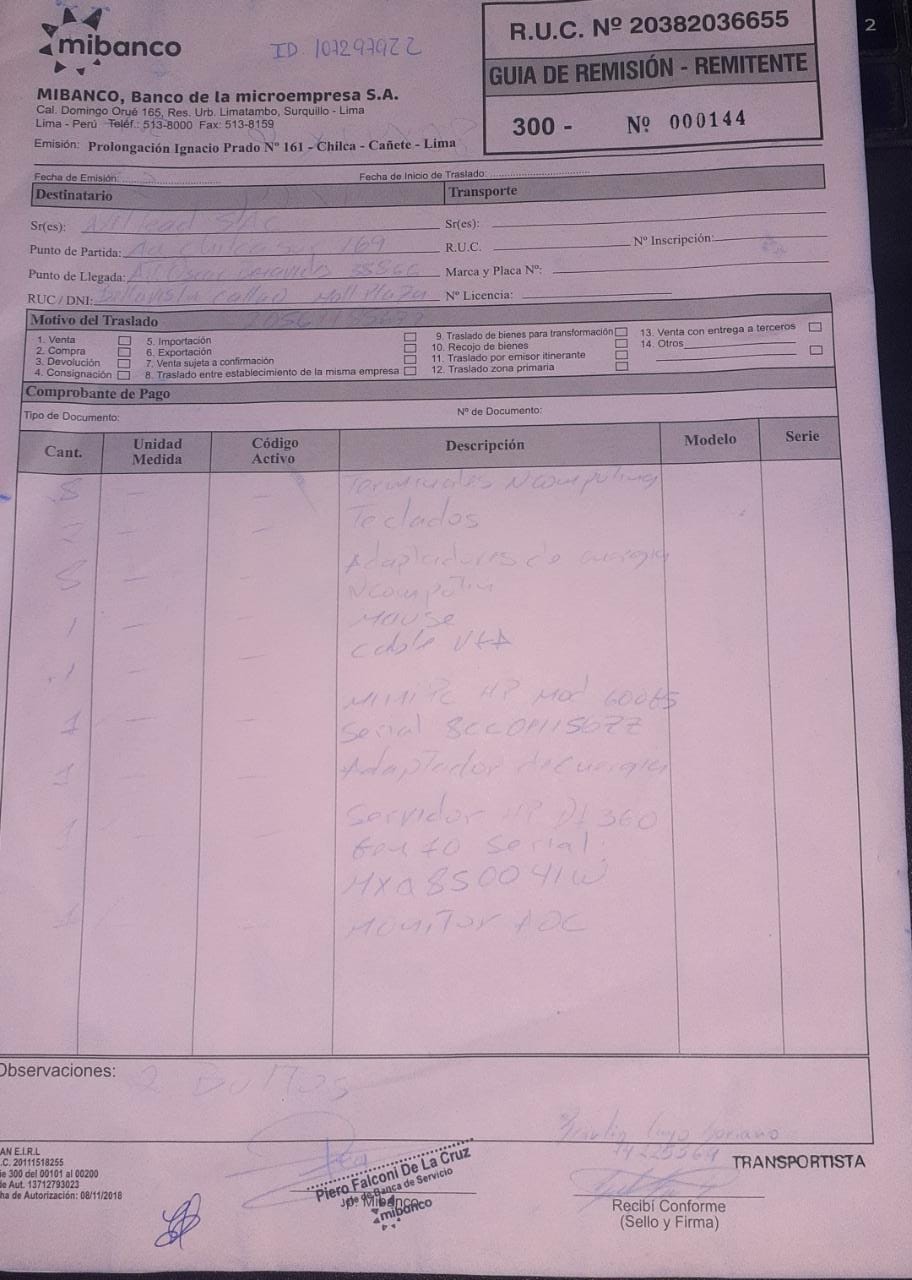 2
mibanco
ID 107297922
R.U.C. Nº 20382036655
GUIA DE REMISIÓN - REMITENTE
300 - Nº 000144
MIBANCO, Banco de la microempresa S.A.
Cal. Domingo Orué 165, Res. Urb. Limatambo, Surquillo - Lima
Lima - Perú Teléf.: 513-8000 Fax: 513-8159
Emisión: Prolongación Ignacio Prado Nº 161 - Chilca - Cañete - Lima
Fecha de Emisión: Fecha de Inicio de Traslado:
Destinatario Transporte
Sr(es): SAC Sr(es):
Punto de Partida: 169 R.U.C. Nº Inscripción:
Punto de Llegada: Marca y Placa Nº:
RUC / DNI: Bellavista Callao Mall Plaza Nº Licencia:
Motivo del Traslado
1. Venta 5. Importación 9. Traslado de bienes para transformación 13. Venta con entrega a terceros
2. Compra 6. Exportación 10. Recojo de bienes 14. Otros
3. Devolución 7. Venta sujeta a confirmación 11. Traslado por emisor itinerante
4. Consignación 8. Traslado entre establecimiento de la misma empresa 12. Traslado zona primaria
Comprobante de Pago
Tipo de Documento: Nº de Documento:
Cant. Unidad Medida Código Activo Descripción Modelo Serie
8 — — Terminales Ncomputing
— — Teclados
— Adaptadores de energia
Ncomputin
1 — — Mouse
1 — — cable VGA
Mini Pc HP Mod
1 — — Serial
1 — — Adaptador de energia
1 Servidor HP Dl 360
Gen 10 Serial:
MXQ850041W
1 — Monitor AOC
Observaciones: 2 Bultos
AN E.I.R.L
.C. 20111518255
ie 300 del 00101 al 00200
de Aut. 13712793023
ha de Autorización: 08/11/2018
Piero Falconi De La Cruz
Jefe de Banca de Servicio
Jp. Mibanco
mibanco
TRANSPORTISTA
Recibí Conforme
(Sello y Firma)